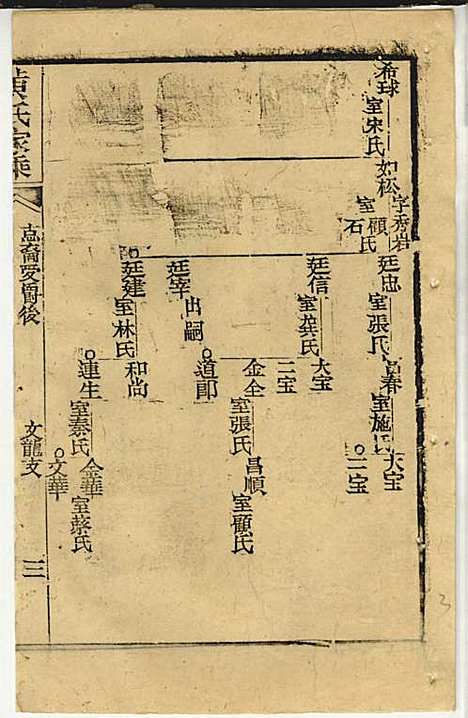 希球
室宋氏
如松
字秀岩
室顧氏
石
廷忠
室張氏
昌春
室施氏
大宝
二宝
廷信
室龚氏
大宝
二宝
金全
室張氏
昌順
室顧氏
廷宰
出嗣
道郎
廷建
室林氏
和尚
連生
室秦氏
金華
室蔡氏
文華
黄氏家乘
裔受爵後
文龍支
三
3